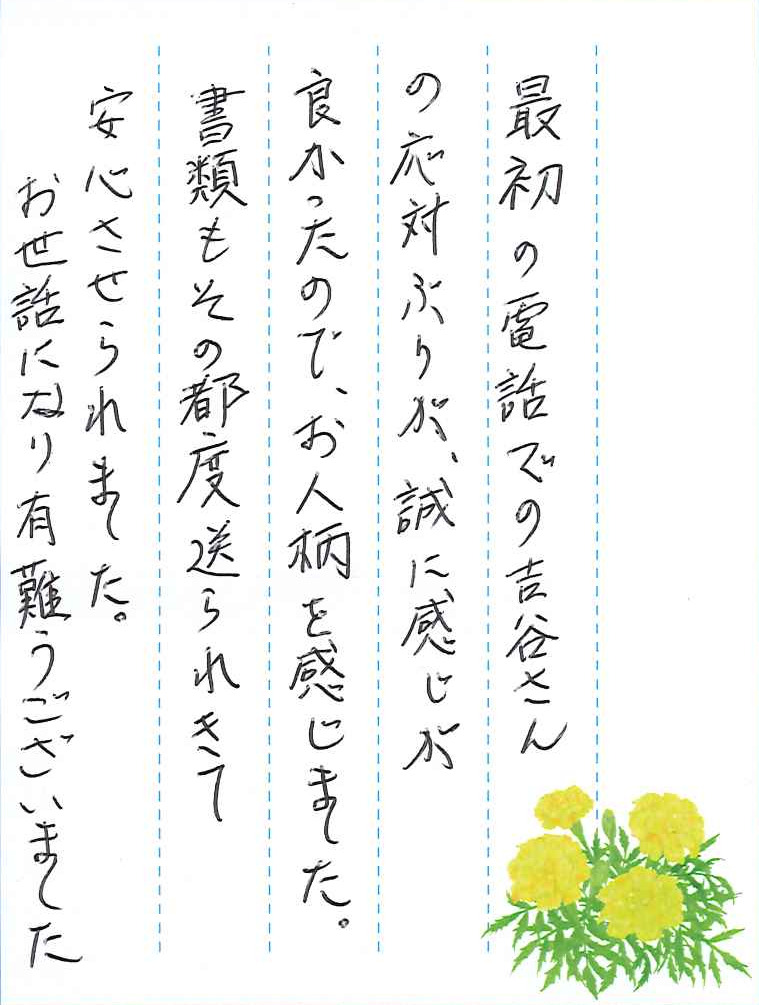 最初の電話での吉谷さん
の応対ぶりが、誠に感じが
良かったので、お人柄を感じました。
書類もその都度送られきて
安心させられました。
お世話になり有難うございました